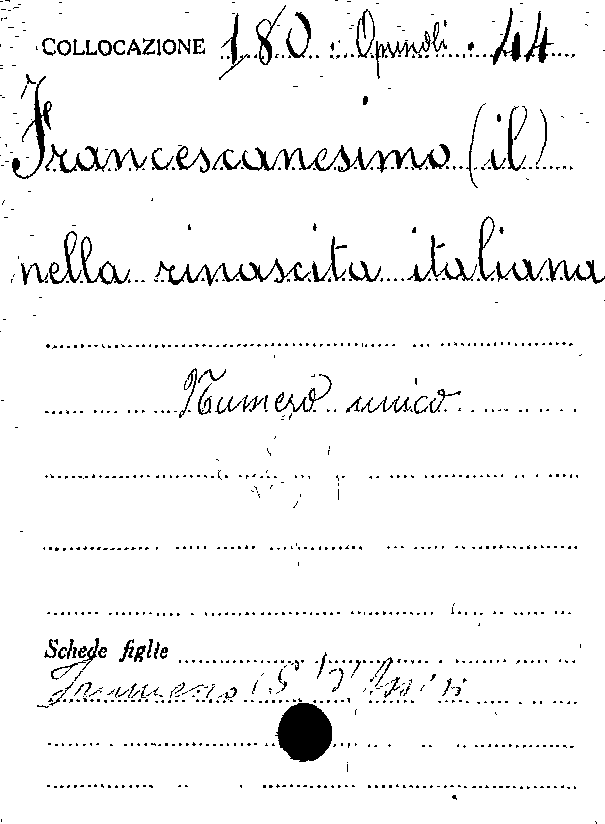 COLLOCAZIONE 180. Opuscoli. 44
Francescanesimo (il)
nella rinascita italiana
Numero unico
Schede figlie
(S. d'Assisi